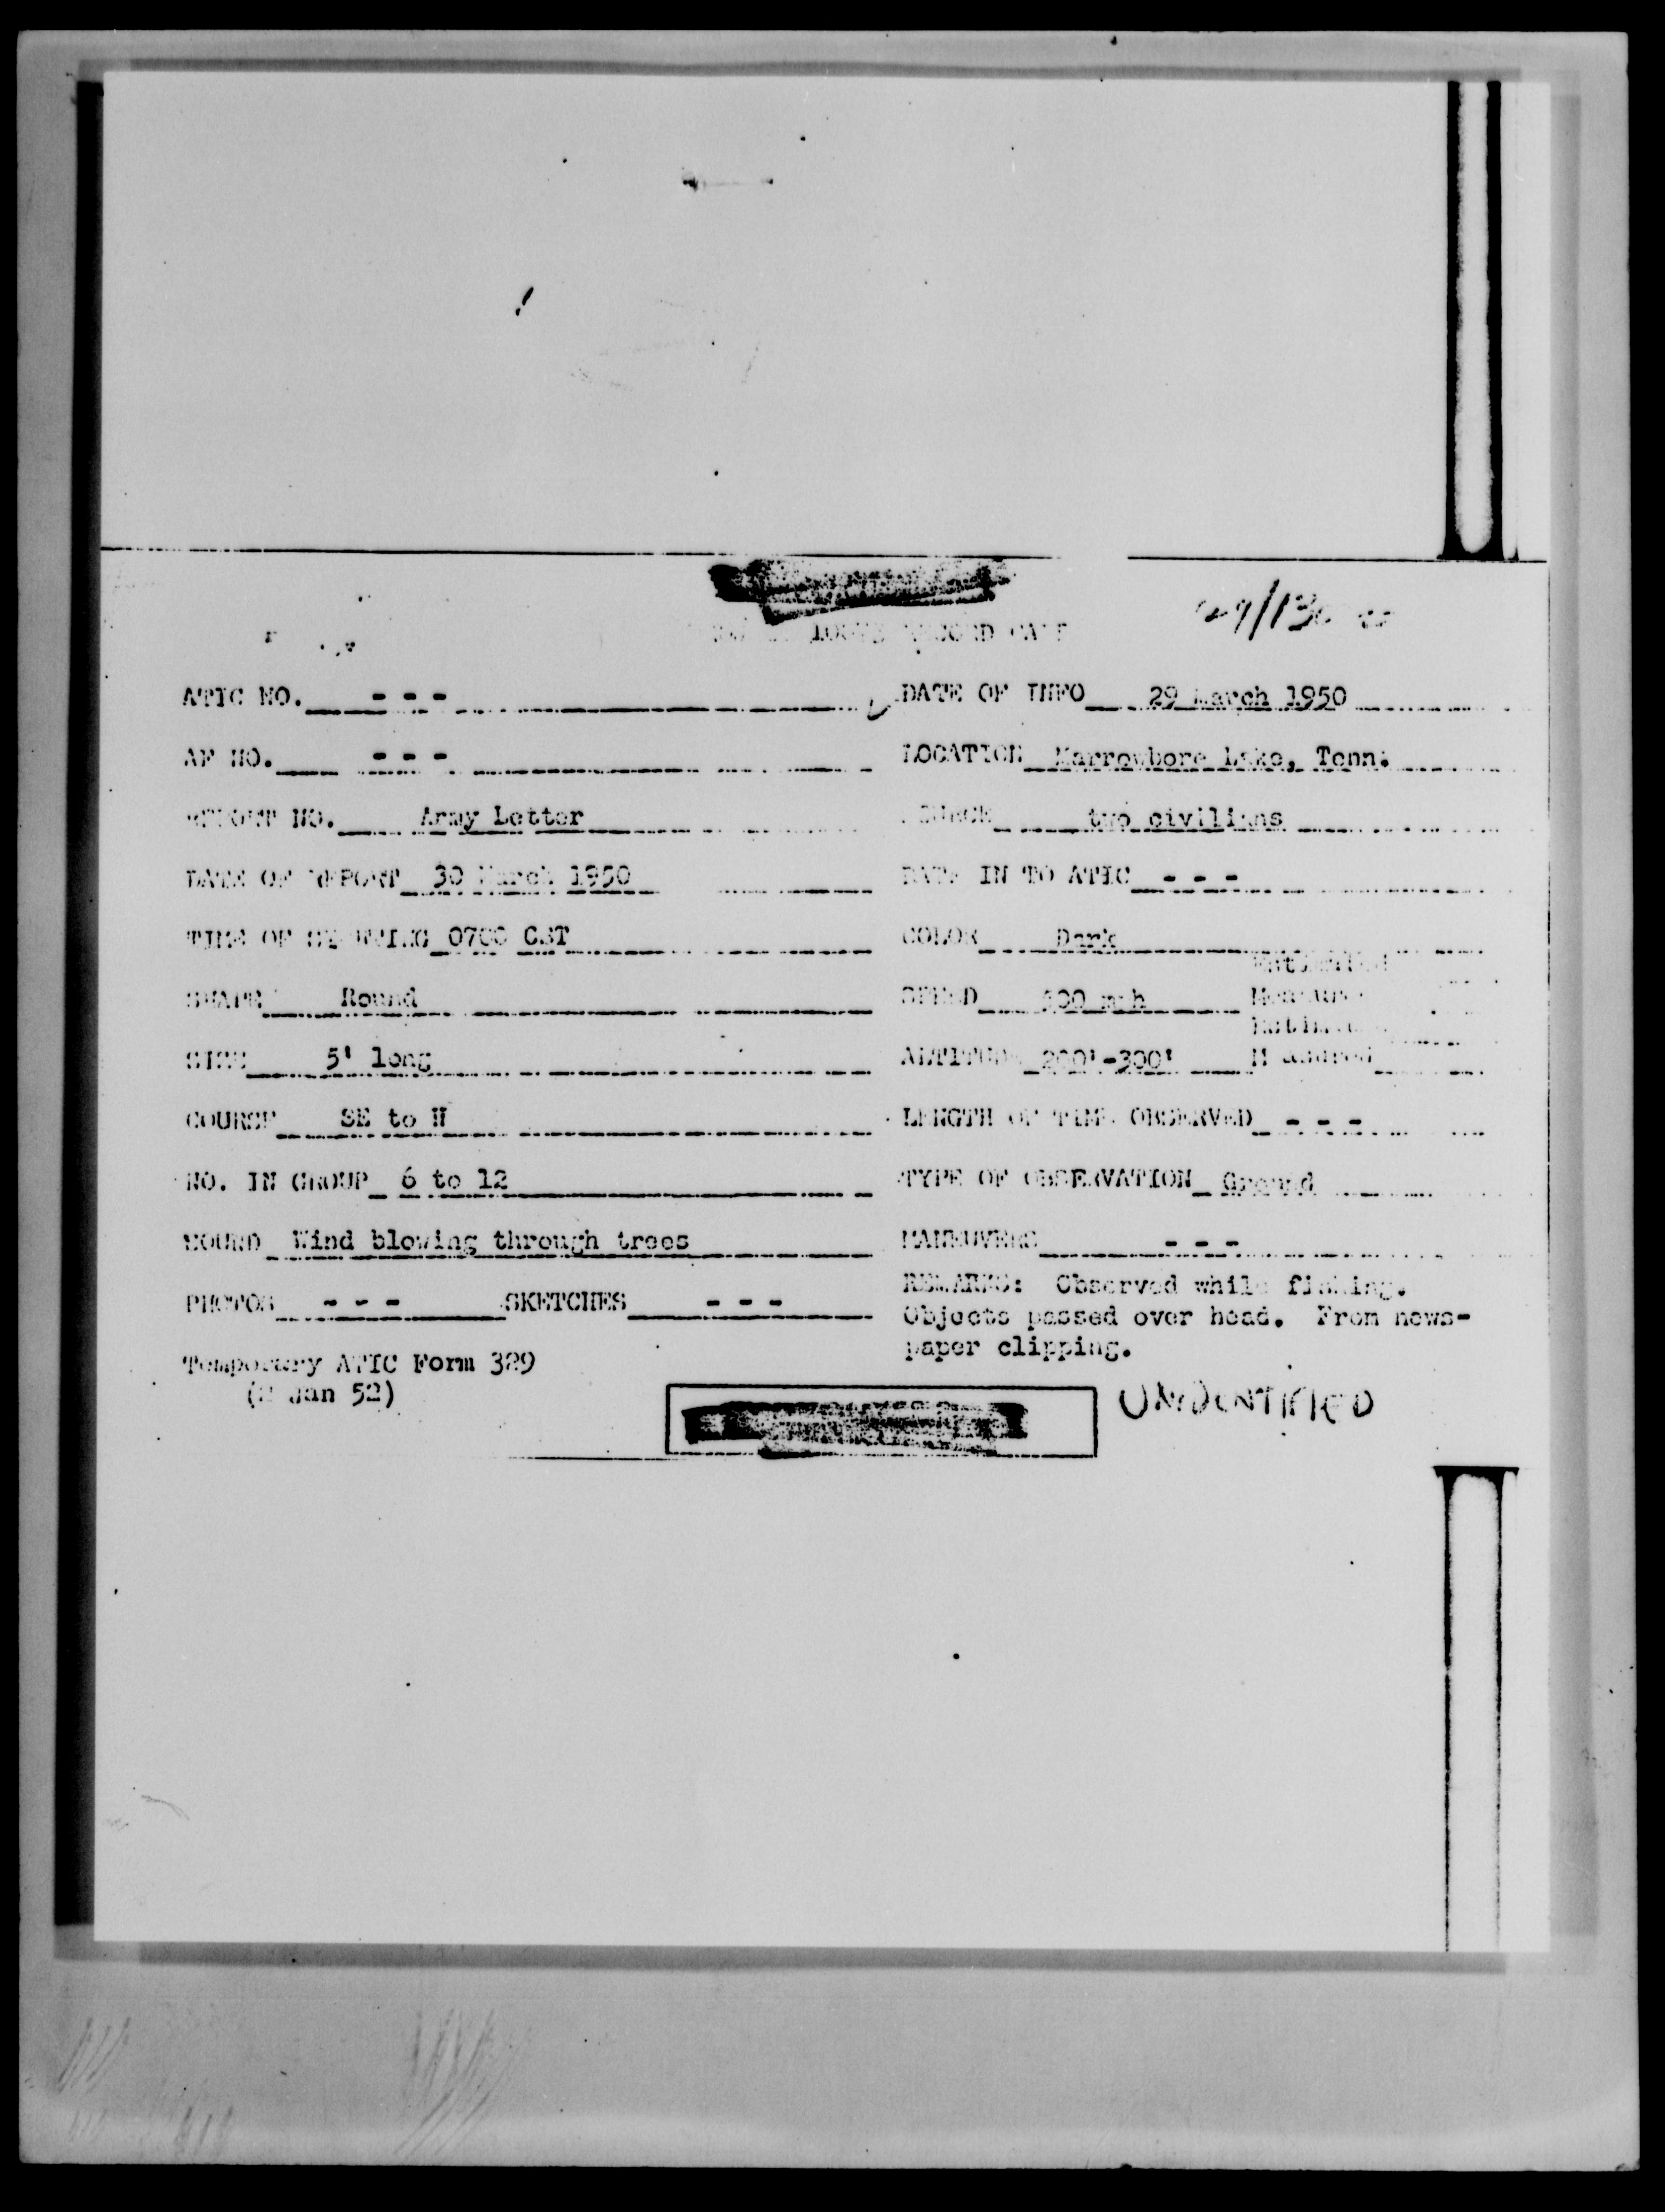 RECORD CARD
ATIC NO. - - - DATE OF INFO 29 March 1950
AF NO. - - - LOCATION Marrowbore Lake, Tenn.
REPORT NO. Army Letter SOURCE two civilians
DATE OF REPORT 30 March 1950 DATE IN TO ATIC - - -
TIME OF SIGHTING 0700 CST COLOR Dark
Estimated
SHAPE Round SPEED mph Measured
Estimated
SIZE 5' long ALTITUDE 200'-300' Measured
COURSE SE to LENGTH OF TIME OBSERVED - - -
NO. IN GROUP 6 to 12 TYPE OF OBSERVATION Ground
SOUND Wind blowing through trees MANEUVERS - - -
PHOTOS - - - SKETCHES - - - REMARKS: Observed while fishing.
Objects passed over head. From news-
paper clipping.
Temporary ATIC Form 329
Jan 52)
UNIDENTIFIED